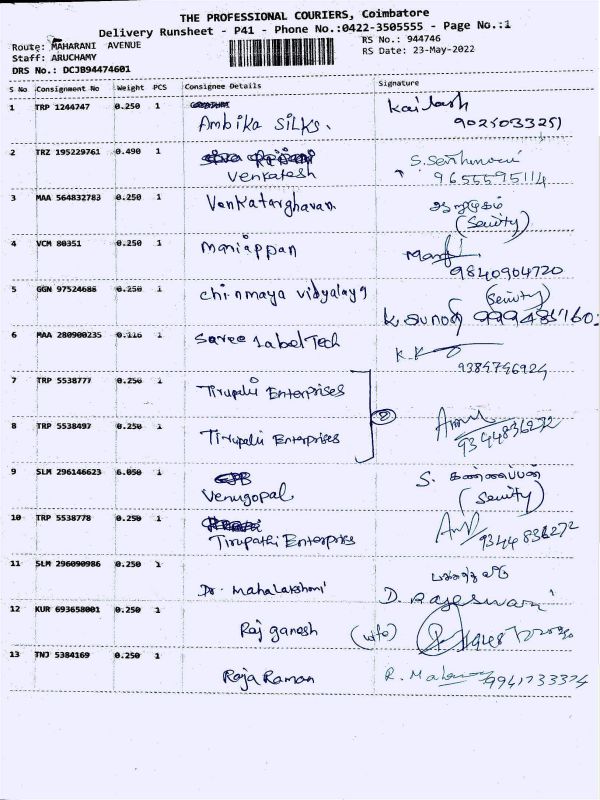 THE PROFESSIONAL COURIERS, Coimbatore
Delivery Runsheet - P41 - Phone No.:0422-3505555 - Page No.:1
Route: MAHARANI AVENUE RS No.: 944746
Staff: ARUCHAMY RS Date: 23-May-2022
DRS No.: DCJB94474601
S No Consignment No Weight PCS Consignee Details Signature
1 TRP 1244747 0.250 1 Ambika SILKS. Kailash
9025033251
2 TRZ 195229761 0.490 1 Venkatesh
9655595114
3 MAA 564832783 0.250 1 Venkatarghavan ஆறுமுகம்
(Seuity)
4 VCM 80351 0.250 1 Maniappan
9840904720
5 GGN 97524686 0.250 1 chinmaya vidyalaya (Seuity)
6 MAA 280900235 0.116 1 Saree Label Tech
9384746924
7 TRP 5538777 0.250 1 Tirupathi Enterprises
8 TRP 5538497 0.250 1 Tirupathi Enterprises
9344836272
9 SLM 296146623 6.050 1 Venugopal S. கண்ணப்பன்
(Seuity)
10 TRP 5538778 0.250 1 Tirupathi Enterprises 9344836272
11 SLM 296090986 0.250 1 Dr. Mahalakshmi D. Rajeswari
12 KUR 693658001 0.250 1 Raj ganesh (wife)
13 TNJ 5384169 0.250 1 Raja Raman 9941733374